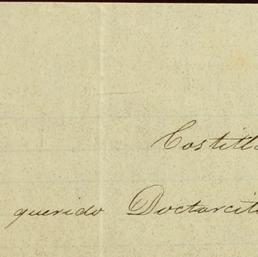 Costill
querido Doctorcit